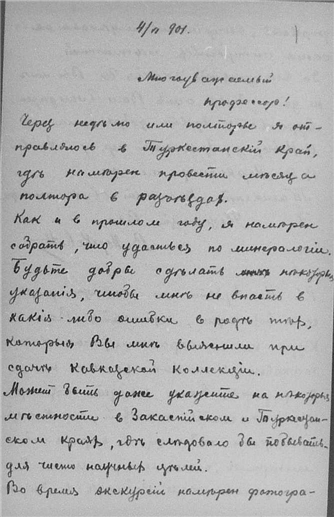 4/II 901.
Многоуважаемый
профессор!
Через неделю или полторы я от-
правляюсь в Туркестанскій край,
гдѣ намѣрен провести мѣсяца
полтора в разъѣздах.
Как и в прошлом году, я намѣрен
собрать, что удасться по минералогіи.
Будьте добры сдѣлать мнѣ нѣкоторыя
указанія, чтобы мнѣ не впасть в
какія-либо ошибки в родѣ тѣх,
которыя Вы мнѣ выяснили при
сдачѣ Кавказской Коллекціи.
Может быть даже укажете на нѣкоторыя
мѣстности в Закаспійском и Туркестан-
ском краях, гдѣ слѣдовало бы побывать
для чисто научных цѣлей.
Во время экскурсій намѣрен фотогра-